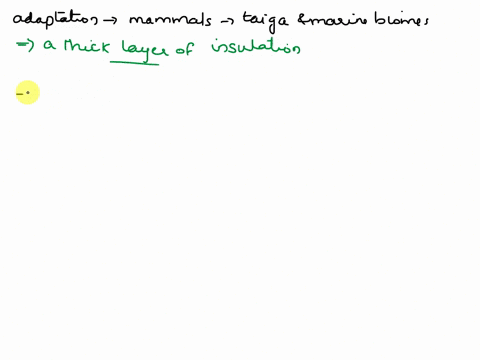 adaptation → mammals → taiga & marine biomes
⇒ a thick layer of insulation